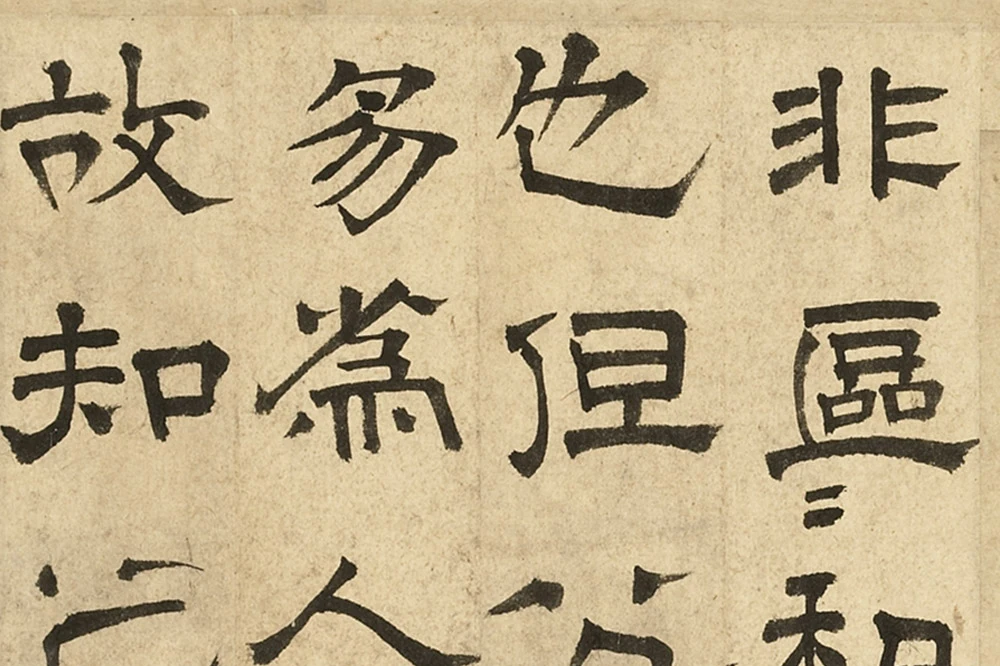 非區〻和
也但
易為人
故知